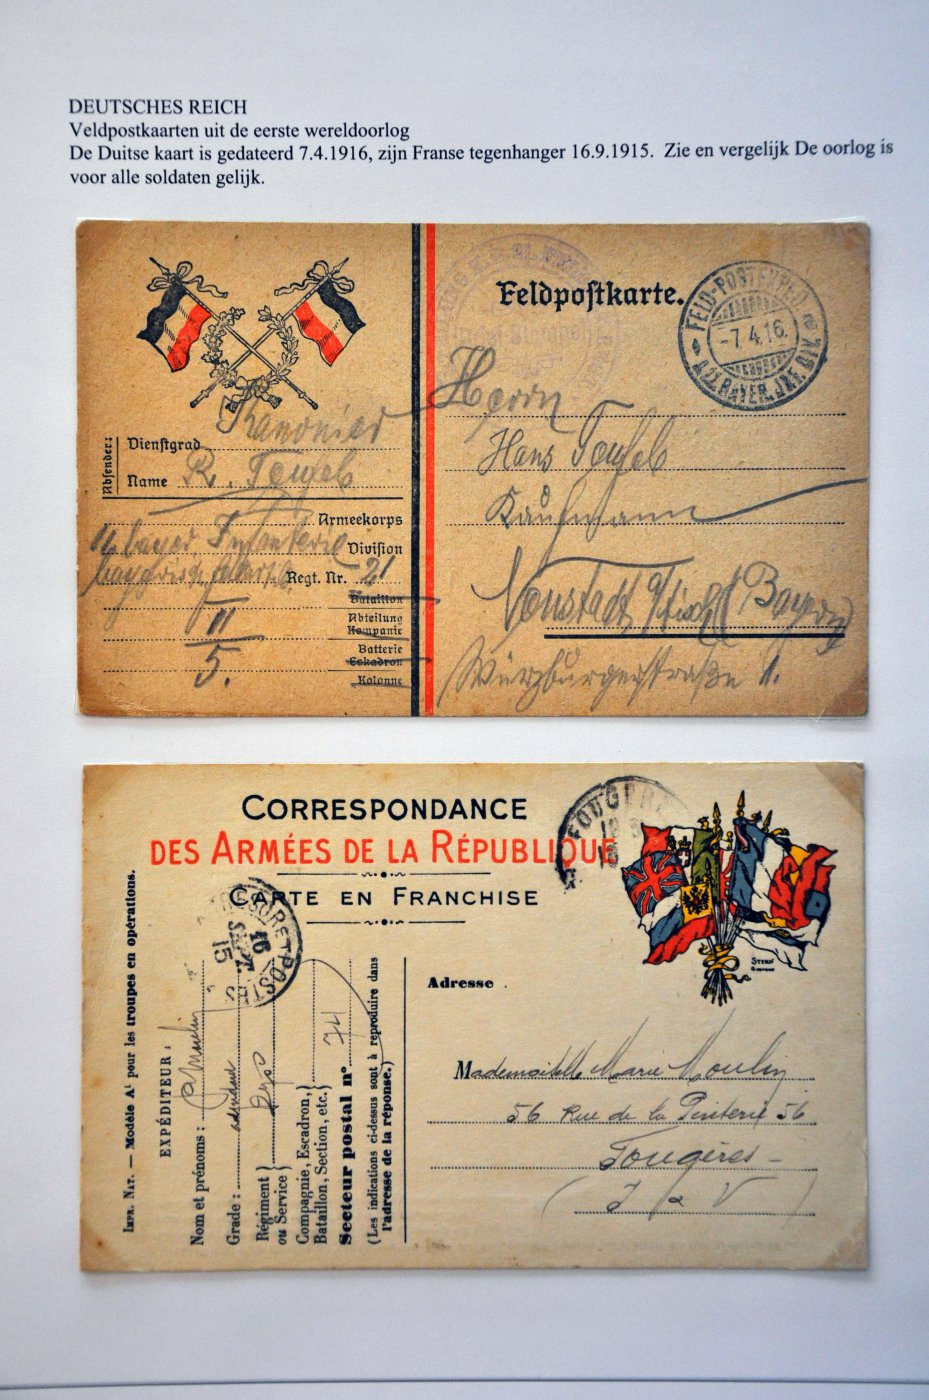 DEUTSCHES REICH
Veldpostkaarten uit de eerste wereldoorlog
De Duitse kaart is gedateerd 7.4.1916, zijn Franse tegenhanger 16.9.1915. Zie en vergelijk De oorlog is
voor alle soldaten gelijk.
Feldpostkarte.
FELD-POSTEXPED
-7.4.16.
BAYER. INF. DIV.
Absender:
Dienstgrad Kanonier
Name R. Teufel
Armeekorps
11 bayer Infanterie Division
Regt. Nr. 21
Bataillon
II Abteilung
Kompanie
5. Batterie
Eskadron
Kolonne
Herrn
Hans Teufel
Kaufmann
Neustadt a/Aisch (Bayern)
Würzburgerstraße 1.
CORRESPONDANCE
DES ARMÉES DE LA RÉPUBLIQUE
CARTE EN FRANCHISE
FOUGERES
TRESOR ET POSTES
16
SEPT
15
STERN
IMP. NAT. — Modèle A¹ pour les troupes en opérations.
EXPÉDITEUR :
Nom et prénoms : Moulin
Grade :
Régiment
ou Service
Compagnie, Escadron,
Bataillon, Section, etc.,
Secteur postal n° 74
(Les indications ci-dessus sont à reproduire dans
l'adresse de la réponse.)
Adresse
Mademoiselle Marie Moulin
56 Rue de la Pinterie 56
Fougères
(I & V)